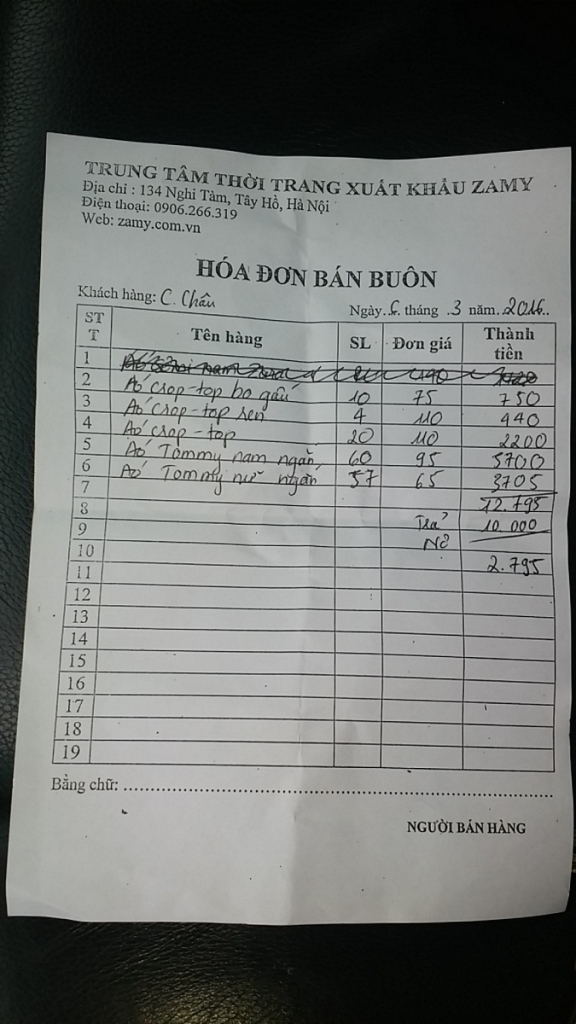 TRUNG TÂM THỜI TRANG XUẤT KHẨU ZAMY
Địa chỉ : 134 Nghi Tàm, Tây Hồ, Hà Nội
Điện thoại: 0906.266.319
Web: zamy.com.vn
HÓA ĐƠN BÁN BUÔN
Khách hàng: C. Châu
Ngày. tháng .3 năm. 2016..
STT Tên hàng SL Đơn giá Thành tiền
1
2 Aó crop-top bo gấu 10 75 750
3 Aó crop-top sen 4 110 440
4 Aó crop-top 20 110 2200
5 Aó Tommy nam ngắn 60 95 5700
6 Aó Tommy nữ ngắn 57 65 3705
7 12.795
8 Trả 10 000
9 Nợ
10 2.795
11
12
13
14
15
16
17
18
19
Bằng chữ: ........................................................................
NGƯỜI BÁN HÀNG